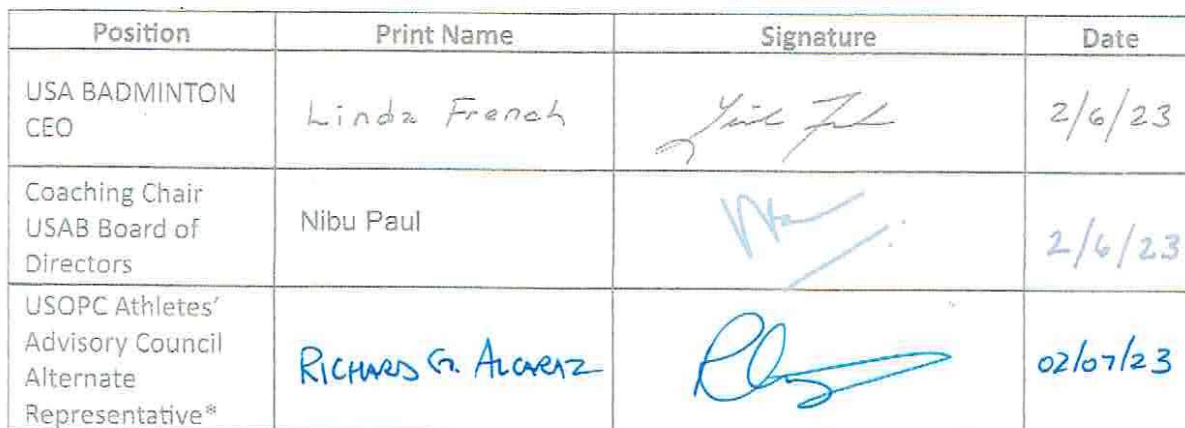 Position Print Name Signature Date
USA BADMINTON
CEO
Linda French
2/6/23
Coaching Chair
USAB Board of
Directors
Nibu Paul
2/6/23
USOPC Athletes'
Advisory Council
Alternate
Representative*
RICHARD G. ALCARAZ
02/07/23